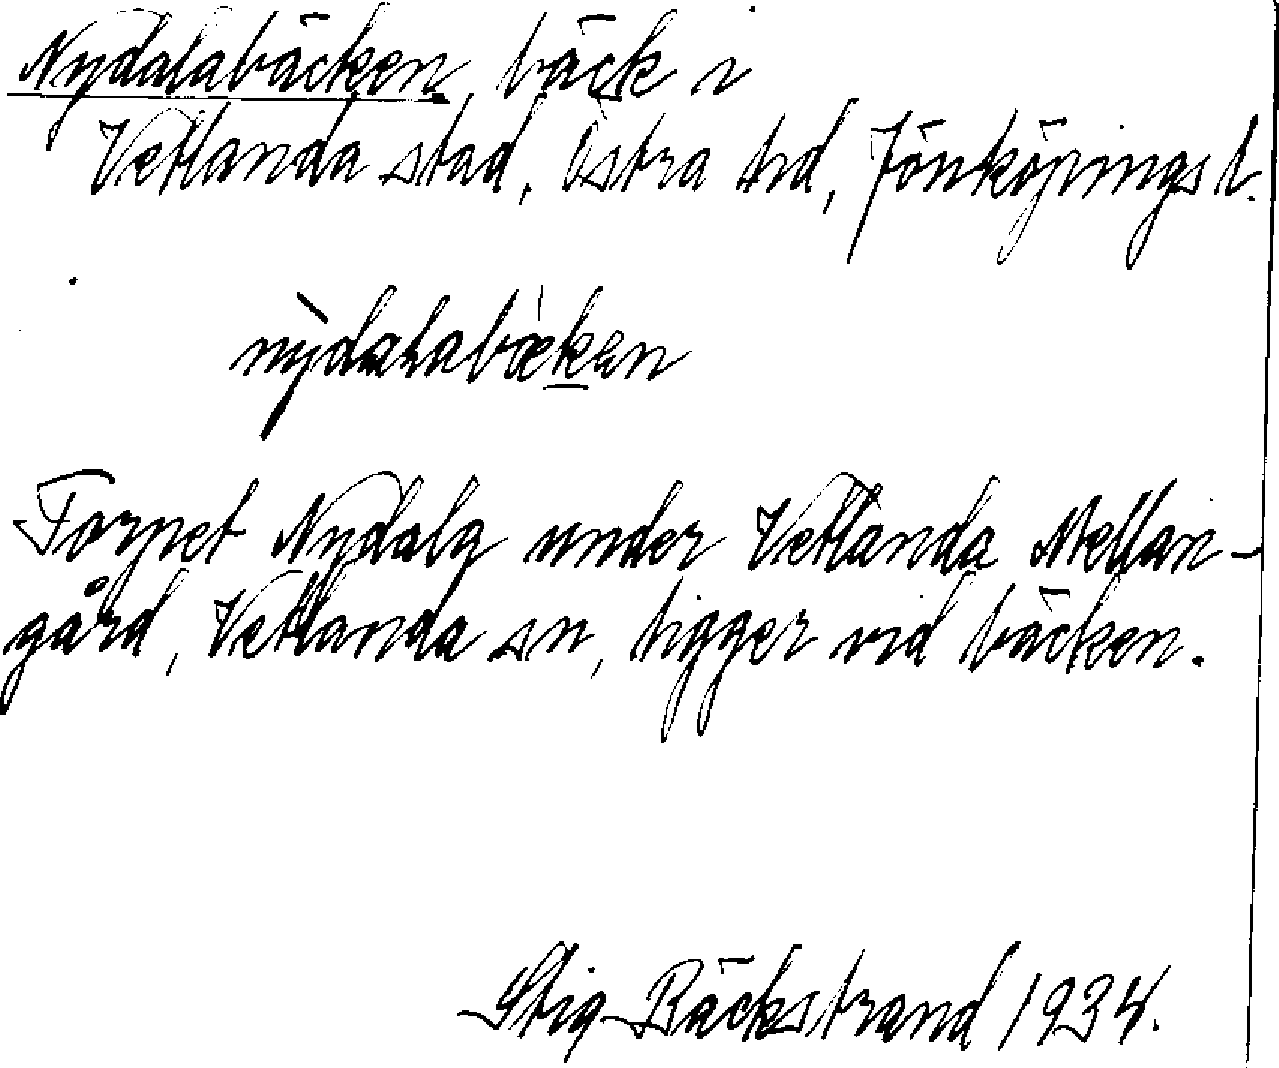 Nydalabäcken, bäck i
Vetlanda stad, Östra hd, Jönköpings l.
nỳdalabækən
Torpet Nydala under Vetlanda Mellan-
gård, Vetlanda sn, ligger vid bäcken.
Stig Bäckstrand 1934.